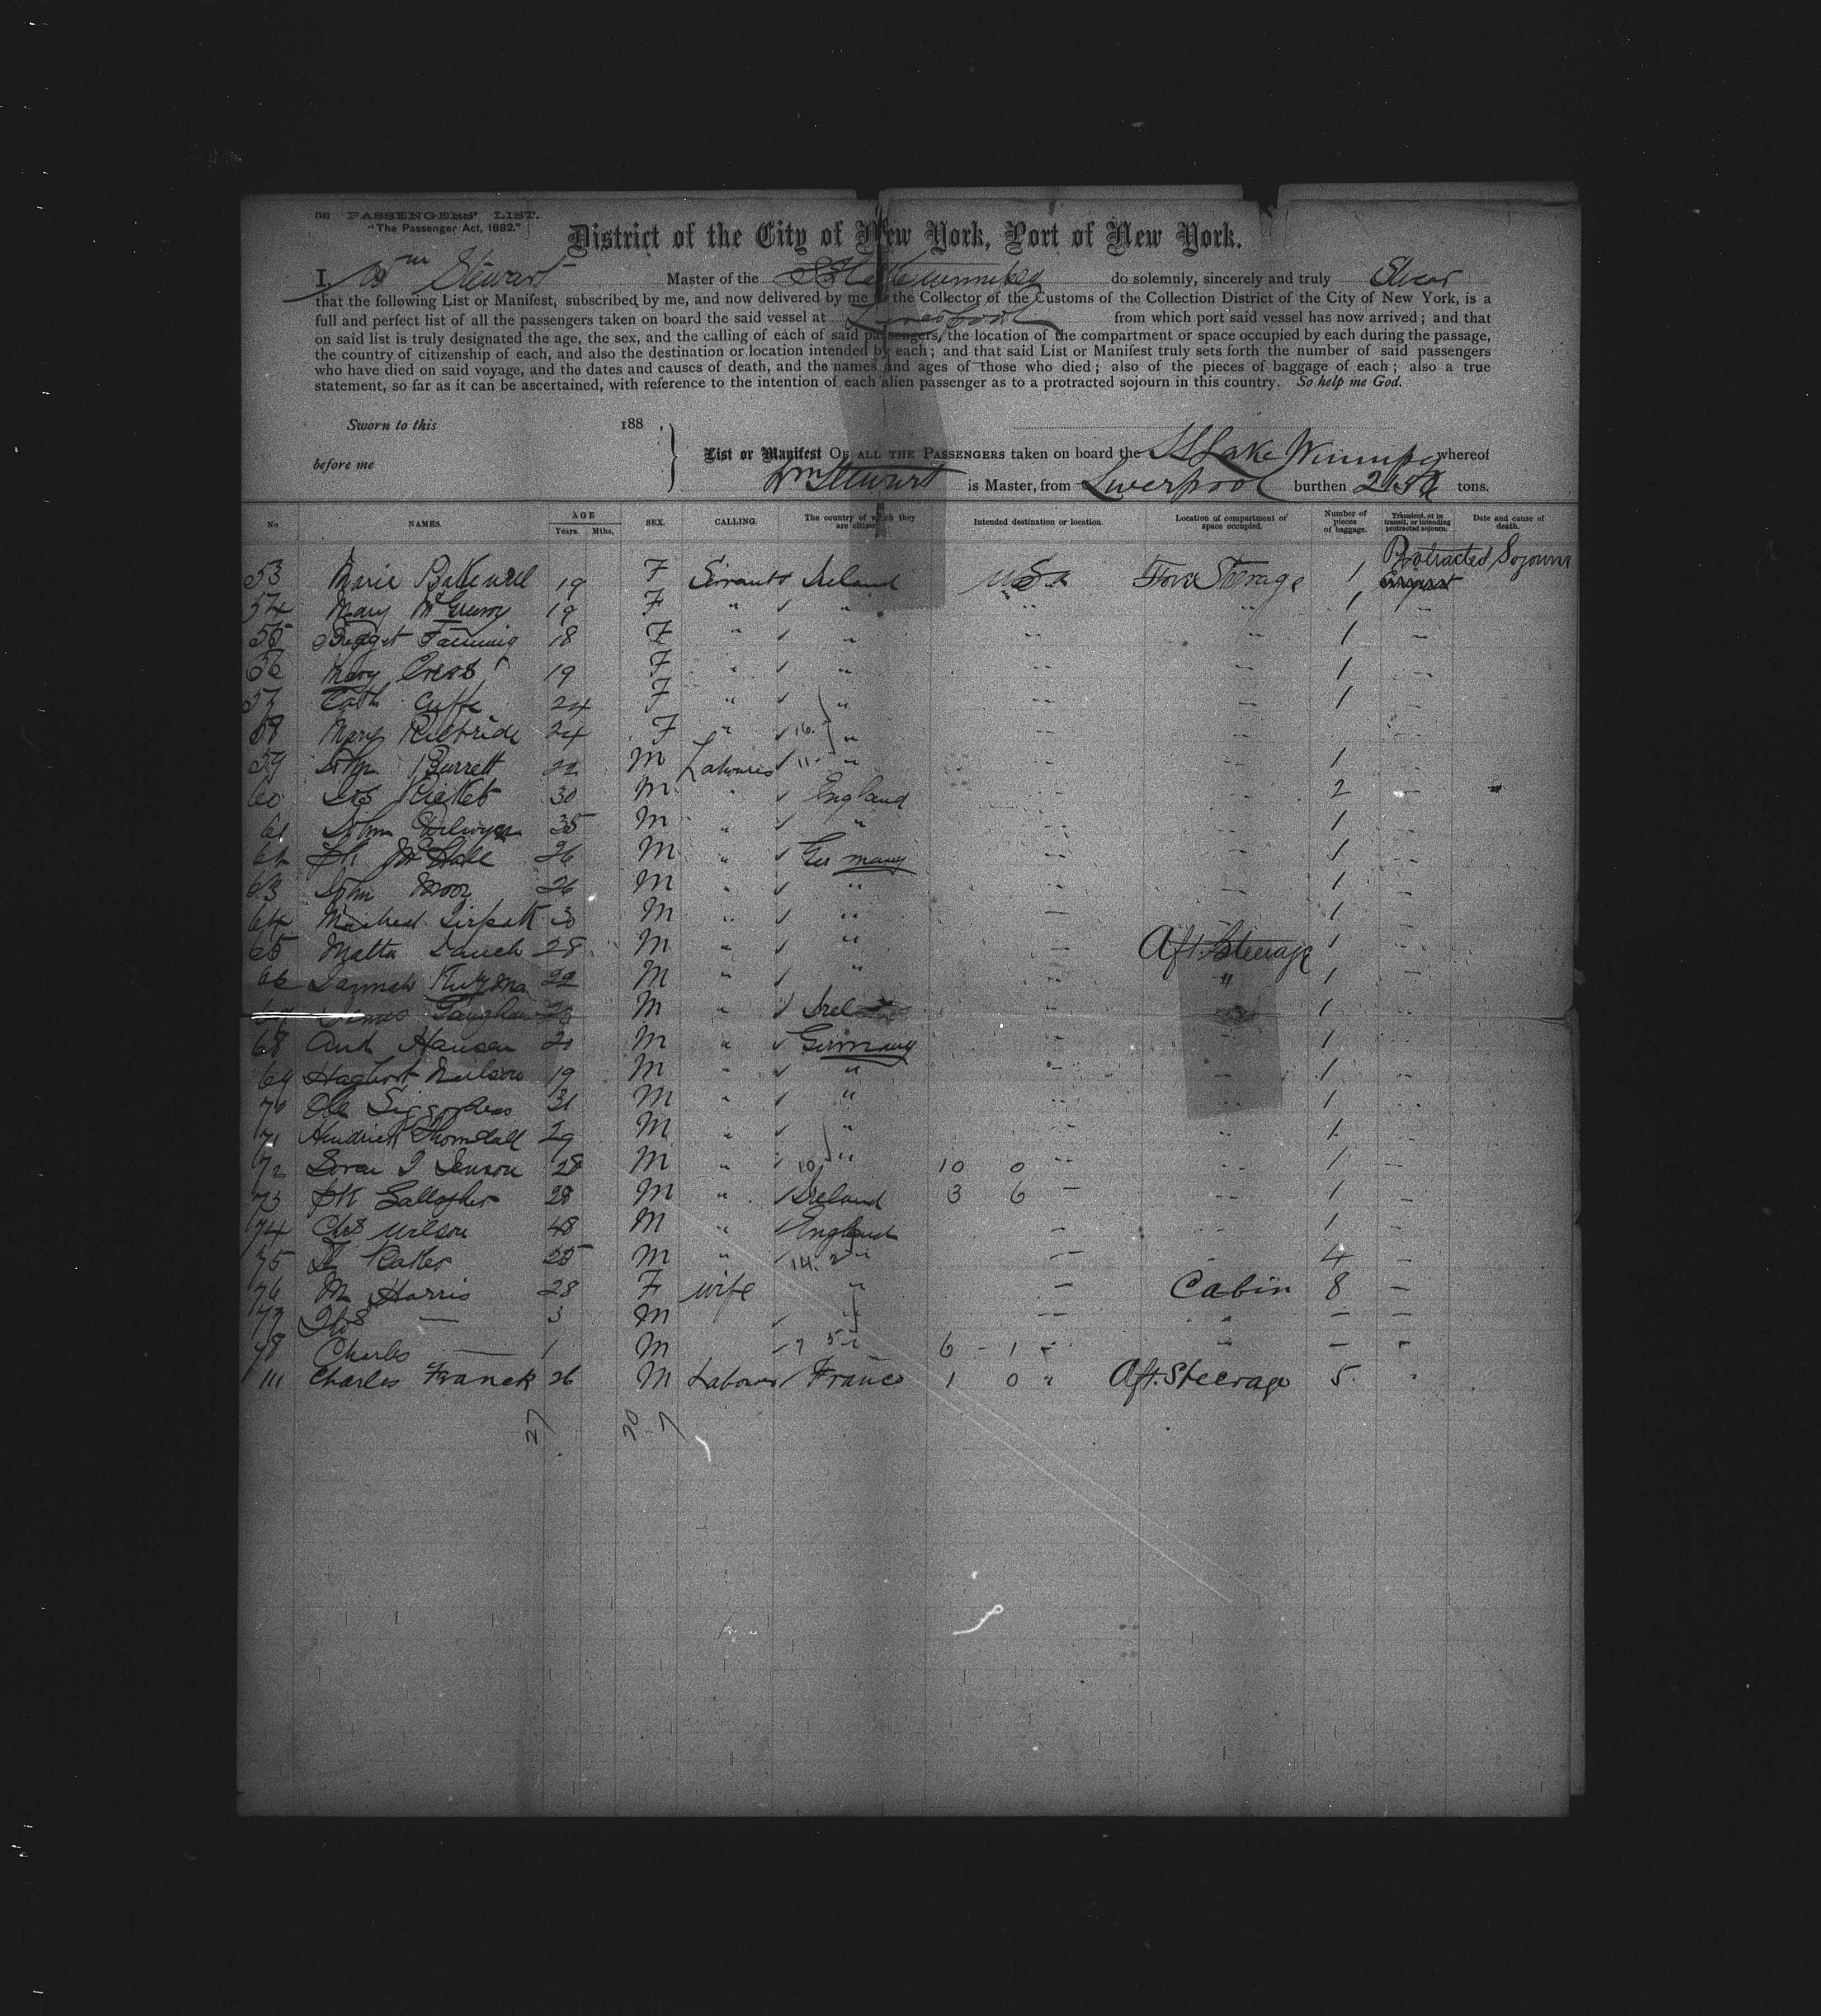 PASSENGERS' LIST.
"The Passenger Act, 1882."
District of the City of New York, Port of New York.
I, Wm Stewart Master of the SS Lake Winnipeg do solemnly, sincerely and truly Swear
that the following List or Manifest, subscribed by me, and now delivered by me to the Collector of the Customs of the Collection District of the City of New York, is a
full and perfect list of all the passengers taken on board the said vessel at Liverpool from which port said vessel has now arrived; and that
on said list is truly designated the age, the sex, and the calling of each of said passengers, the location of the compartment or space occupied by each during the passage,
the country of citizenship of each, and also the destination or location intended by each; and that said List or Manifest truly sets forth the number of said passengers
who have died on said voyage, and the dates and causes of death, and the names and ages of those who died; also of the pieces of baggage of each; also a true
statement, so far as it can be ascertained, with reference to the intention of each alien passenger as to a protracted sojourn in this country. So help me God.
Sworn to this 188 .
before me
List or Manifest OF ALL THE PASSENGERS taken on board the SS Lake Winnipeg whereof
Wm Stewart is Master, from Liverpool burthen tons.
No NAMES. AGE Years. Mths. SEX. CALLING. The country of which they are citizens. Intended destination or location. Location of compartment or space occupied. Number of pieces of baggage. Transient, or in transit, or intending protracted sojourn. Date and cause of death.
Protracted Sojourn
53 Marie Bakewell 19 F Servant Ireland USA Fore Steerage 1
54 Mary 19 F " " " " 1 -
55 Bridget Fanning 18 F " " " " 1 -
56 Mary 19 F " " " " 1 -
57 Cath Cuffe 24 F " " " " 1 -
58 Mary Kilbride 24 F " 16 " " "
59 John Barrett 22 M Labourer 11 " " " 1
60 30 M " England " " 2 -
61 John 35 M " " " " 1
62 Pk McHale 26 M " Germany " " 1
63 John Moor 26 M " " " " 1
64 Michael 30 M " " " " 1
65 Matta 28 M " " " Aft Steerage 1
66 22 M " " " " 1
67 Gaughan 23 M " 1
68 And Hansen 21 M " Germany " " 1
69 Neilson 19 M " " " " 1
70 Ole 31 M " " " " 1
71 Hendrick 29 M " " " " 1
72 Soren J Jenson 28 M " 10 " 10 0 " " 1
73 Pk Gallagher 28 M " Ireland 3 6 " " 1
74 Chas Wilson 48 M " England - " 1
75 25 M " 14.2 " - 4 -
76 M Harris 28 F wife " - Cabin 8 -
77 — 3 M " - " - -
78 Charles — 1 M " 6 - 1 " " - -
111 Charles Franck 26 M Labourer France 1 0 " Aft. Steerage 5 "
27 20 - 7